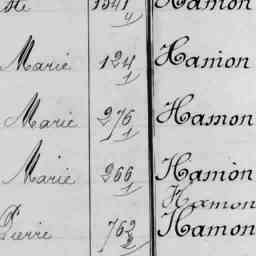 1541 Hamon
4
Marie 124 Hamon
1
Marie 276 Hamon
1
Marie 266 Hamon
1 Hamon
Pierre 762 Hamon
2